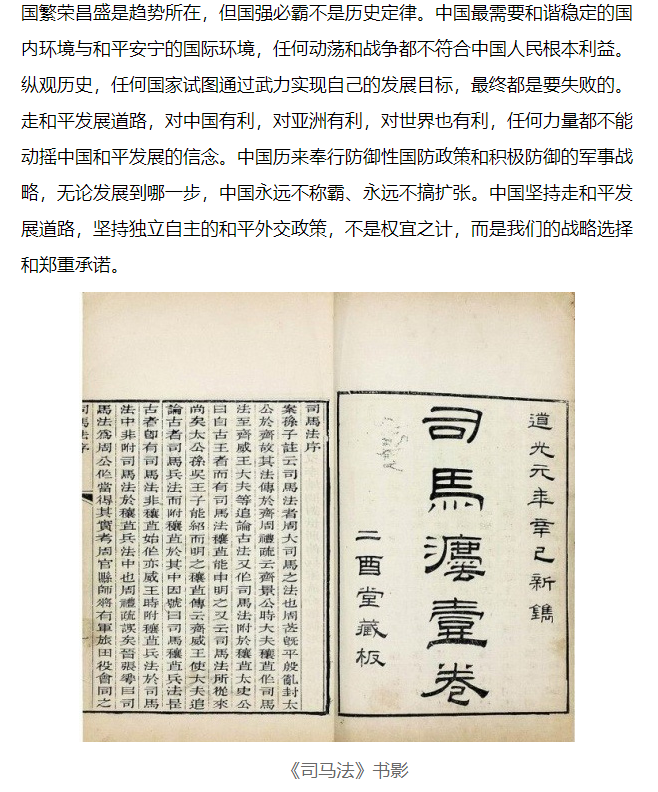 国繁荣昌盛是趋势所在，但国强必霸不是历史定律。中国最需要和谐稳定的国
内环境与和平安宁的国际环境，任何动荡和战争都不符合中国人民根本利益。
纵观历史，任何国家试图通过武力实现自己的发展目标，最终都是要失败的。
走和平发展道路，对中国有利，对亚洲有利，对世界也有利，任何力量都不能
动摇中国和平发展的信念。中国历来奉行防御性国防政策和积极防御的军事战
略，无论发展到哪一步，中国永远不称霸、永远不搞扩张。中国坚持走和平发
展道路，坚持独立自主的和平外交政策，不是权宜之计，而是我们的战略选择
和郑重承诺。
道光元年辛巳新鐫
司馬灋壹卷
二酉堂藏板
司馬法序
案孫子註云司馬法者周大司馬之法也周武旣平殷亂封太
公於齊故其法傳於齊周禮疏云齊景公時大夫穰苴作司馬
法至齊威王大夫等追論古法又作司馬法附於穰苴太史公
曰自古王者而有司馬法穰苴能申明之又云司馬法所從來
尚矣太公孫吳王子能紹而明之穰苴傳云齊威王使大夫追
論古者司馬兵法而附穰苴於其中因號曰司馬穰苴兵法是
古者卽有司馬法非穰苴始作亦威王時附穰苴兵法於司馬
法中非附司馬法於穰苴兵法中也周禮疏誤矣晉張華曰司
馬法爲周公作當得其實考周官縣師將有軍旅田役會同之
司馬法序
《司马法》书影